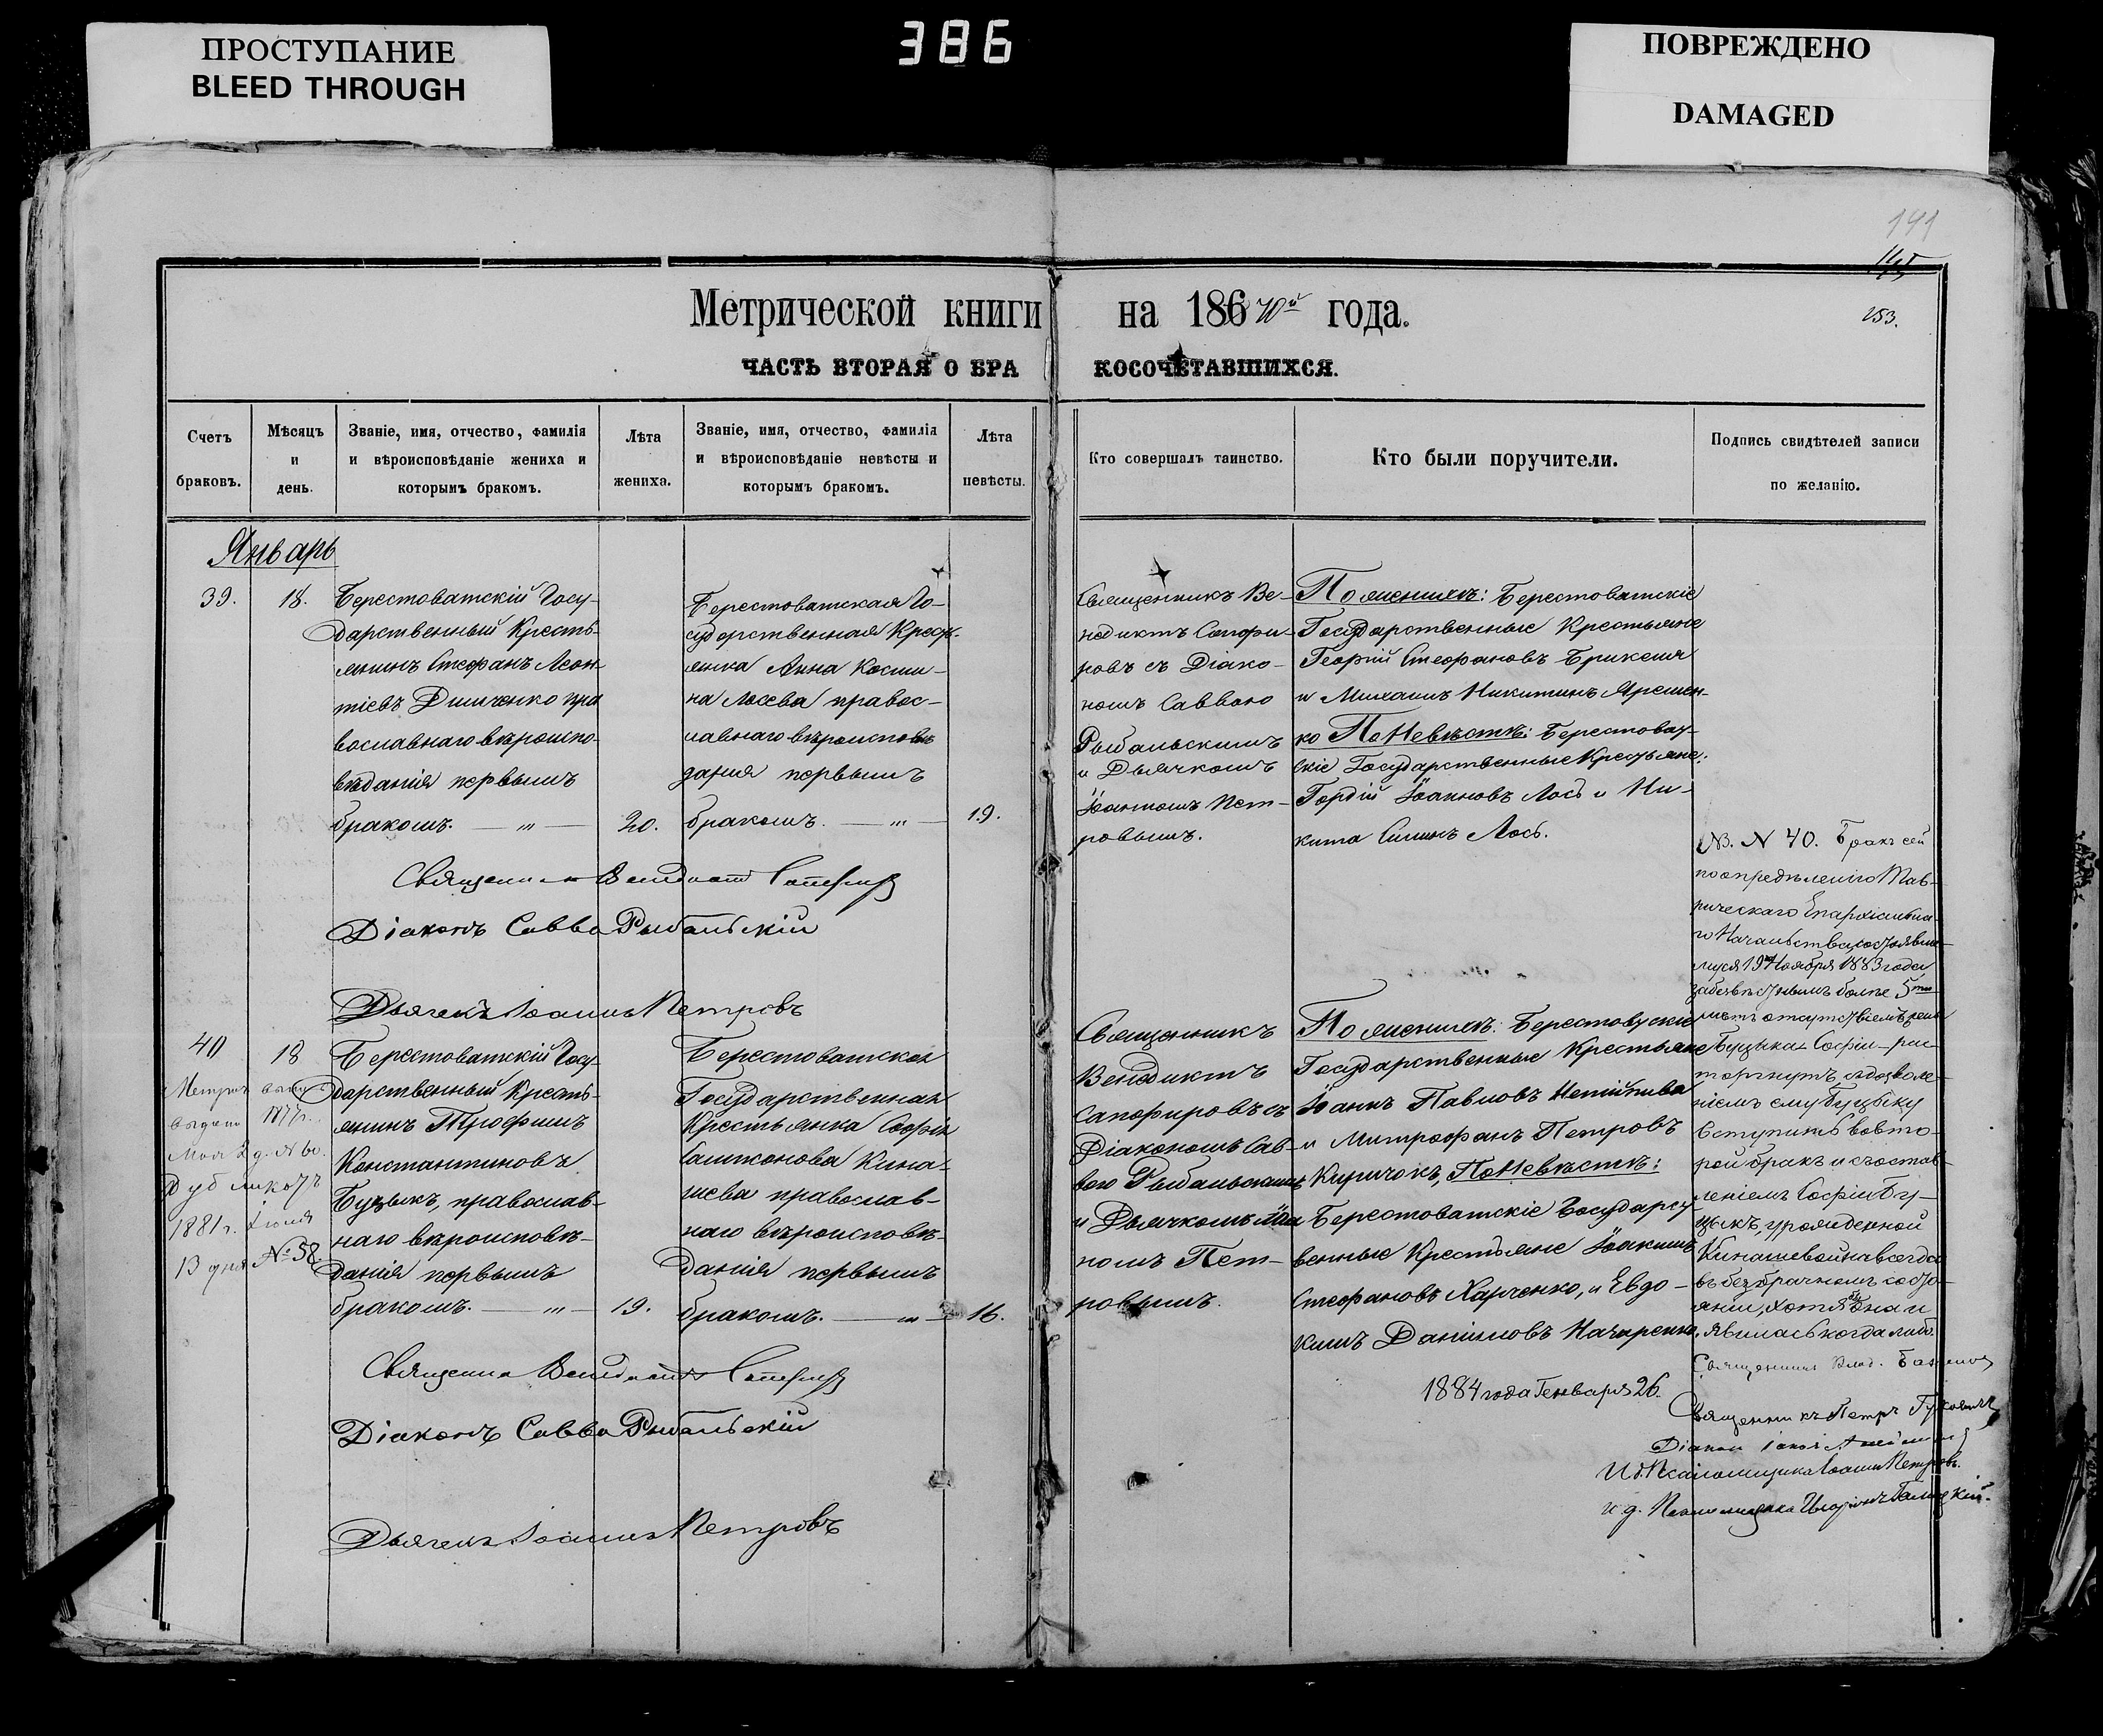 ПРОСТУПАНИЕ
BLEED THROUGH
386
ПОВРЕЖДЕНО
DAMAGED
191
153.
Метрической книги на 186 70й года.
ЧАСТЬ ВТОРАЯ О БРАКОСОЧЕТАВШИХСЯ.
Счетъ
браковъ.
Мѣсяцъ
и
день.
Званіе, имя, отчество, фамилія
и вѣроисповѣданіе жениха и
которымъ бракомъ.
Лѣта
жениха.
Званіе, имя, отчество, фамилія
и вѣроисповѣданіе невѣсты и
которымъ бракомъ.
Лѣта
невѣсты.
Кто совершалъ таинство.
Кто были поручители.
Подпись свидѣтелей записи
по желанію.
Январь
39.
18.
Берестоватскій Госу-
дарственный Кресть-
янинъ Стефанъ Леон-
тіевъ Димченко пра
вославнаго вѣроиспо-
вѣданія первымъ
бракомъ. — „ —
20.
Берестоватская Го-
сударственная Кресть-
янка Анна Косми-
на Лосева правос-
лавнаго вѣроисповѣ
данія первымъ
бракомъ. — „ —
19.
Священникъ Ве-
недиктъ Сапфи-
ровъ съ Діако-
номъ Саввою
Рыбальскимъ
и Дьячкомъ
Іоанномъ Пет-
ровымъ.
По женихѣ: Берестоватскіе
Государственные Крестьяне
Георгій Стефановъ Брикеля
и Михаилъ Никитинъ Яремен-
ко По Невѣстѣ: Берестоват-
скіе Государственные Крестьяне:
Гордій Іоанновъ Лось и Ни-
кита Симинъ Лось.
Священникъ Венедиктъ Сапфировъ
Діаконъ Савва Рыбальскій
Дьячекъ Іоаннъ Петровъ
40
18
Метрич. выпис
выдана 1877г.
Мая 2 д. N 60.
Дубликатъ
1881г. Іюня
13 дня № 58.
Берестоватскій Госу-
дарственный Кресть-
янинъ Трофимъ
Константиновъ
Буцыкъ, православ-
наго вѣроисповѣ-
данія первымъ
бракомъ. — „ —
19.
Берестоватская
Государственная
Крестьянка Софія
Самсонова Кина-
шева православ-
наго вѣроисповѣ-
данія первымъ
бракомъ. — „ —
16.
Священникъ
Венедиктъ
Сапфировъ съ
Діакономъ Сав-
вою Рыбальскимъ
и Дьячкомъ Іоан
номъ Пет-
ровымъ.
По женихѣ: Берестоватскіе
Государственные Крестьяне
Іоаннъ Павловъ Непійпива
и Митрофанъ Петровъ
Киричокъ, По Невѣстѣ:
Берестоватскіе Государст
венные Крестьяне Іоакимъ
Стефановъ Харченко, и Евдо-
кимъ Даниловъ Назаренко.
NB. N 40. Бракъ сей
по опредѣленію Тав-
рическаго Епархіальна-
го Начальства, состоявше-
муся 19го Ноября 1883 года,
за безвѣстнымъ болѣе 5ти
лѣтъ отсутствіемъ жены
Буцыка Софіи — рас-
торгнутъ, съ дозволе-
ніемъ ему Буцыку
вступить во вто-
рой бракъ и съ остав-
леніемъ Софіи Бу-
цыкъ, урожденной
Кинашевой навсегда
въ безбрачномъ состо-
яніи, хотя бы она и
явилась когда либо.
1884 года Генваря 26.
Священникъ Влад. Баженовъ
Священникъ Петръ
Діаконъ Іаковъ
И. д. Псаломщика Іоаннъ Петровъ.
И. д. Псаломщика Иларіонъ Галицкій.
Священникъ Венедиктъ Сапфировъ
Діаконъ Савва Рыбальскій
Дьячекъ Іоаннъ Петровъ